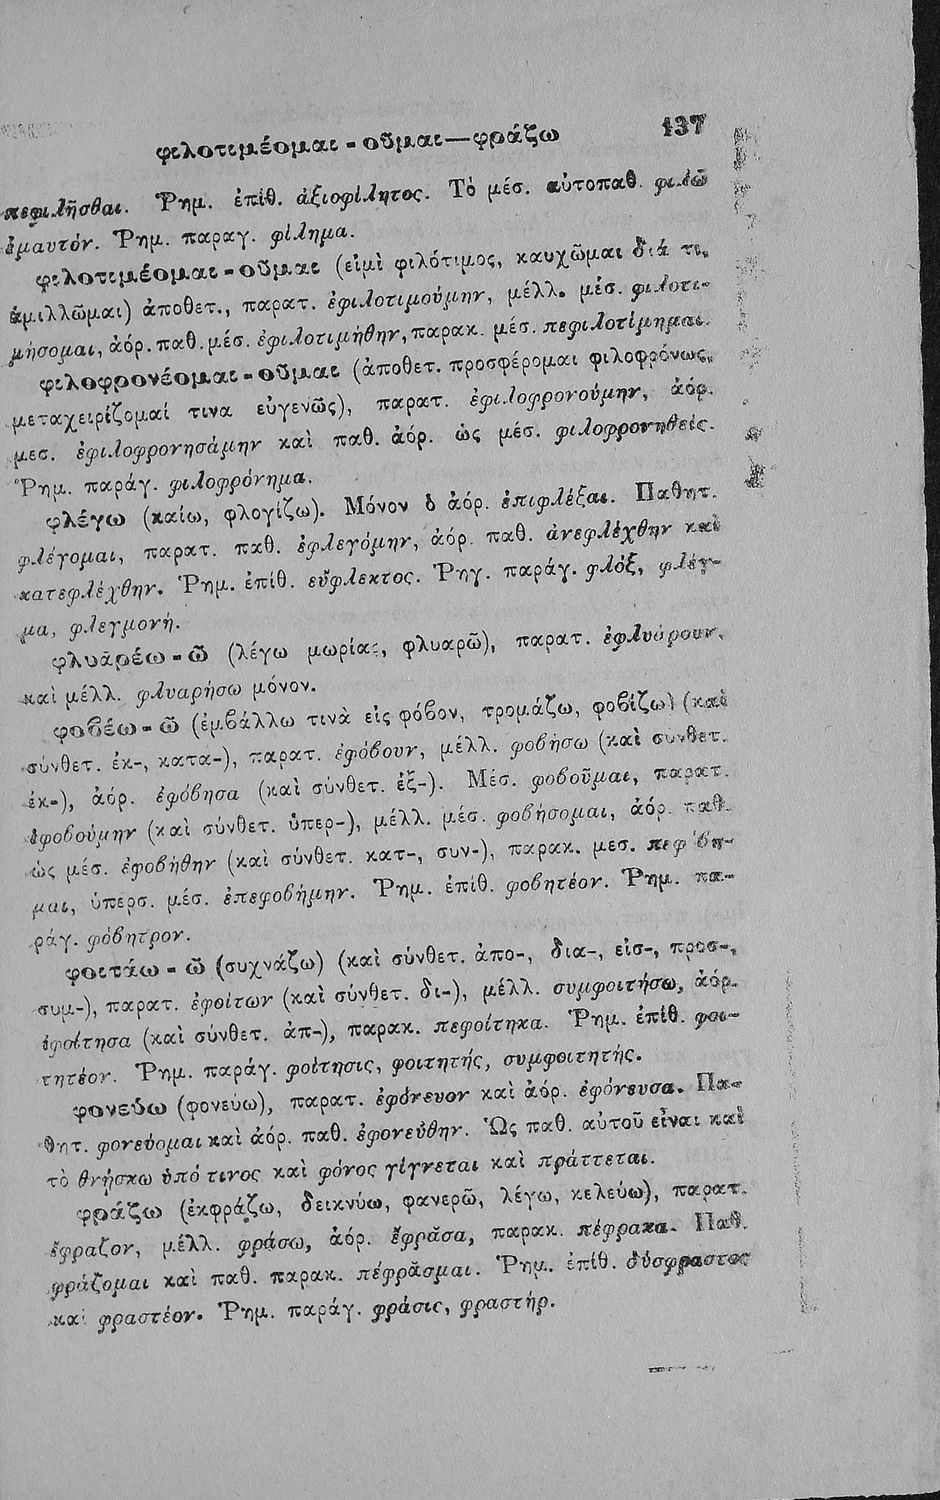 φιλοτιμέομαι - οῦμαι — φράζω 137
πεφιλῆσθαι. Ῥημ. ἐπίθ. ἀξιοφίλητος. Τὸ μέσ. αὐτοπαθ. φιλῶ
ἐμαυτόν. Ῥημ. παραγ. φίλημα.
φιλοτιμέομαι - οῦμαι (εἰμὶ φιλότιμος, καυχῶμαι διά τι,
ἁμιλλῶμαι) ἀποθετ., παρατ. ἐφιλοτιμούμην, μέλλ. μέσ. φιλοτι-
μήσομαι, ἀόρ. παθ. μέσ. ἐφιλοτιμήθην, παρακ. μέσ. πεφιλοτίμημαι.
φιλοφρονέομαι - οῦμαι (ἀποθετ. προσφέρομαι φιλοφρόνως,
μεταχειρίζομαί τινα εὐγενῶς), παρατ. ἐφιλοφρονούμην, ἀόρ.
μεσ. ἐφιλοφρονησάμην καὶ παθ. ἀόρ. ὡς μέσ. φιλοφρονηθείς.
Ῥημ. παράγ. φιλοφρόνημα.
φλέγω (καίω, φλογίζω). Μόνον ὁ ἀόρ. ἐπιφλέξαι. Παθητ.
φλέγομαι, παρατ. παθ. ἐφλεγόμην, ἀόρ. παθ. ἀνεφλέχθην καὶ
κατεφλέχθην. Ῥημ. ἐπίθ. εὔφλεκτος. Ῥηγ. παράγ. φλόξ, φλέγ-
μα, φλεγμονή.
φλυᾱρέω - ῶ (λέγω μωρίας, φλυαρῶ), παρατ. ἐφλυάρουν,
καὶ μέλλ. φλυαρήσω μόνον.
φοβέω - ῶ (ἐμβάλλω τινὰ εἰς φόβον, τρομάζω, φοβίζω) (καὶ
σύνθετ. ἐκ-, κατα-), παρατ. ἐφόβουν, μέλλ. φοβήσω (καὶ συνθετ.
ἐκ-), ἀόρ. ἐφόβησα (καὶ σύνθετ. ἐξ-). Μέσ. φοβοῦμαι, παρατ.
ἐφοβούμην (καὶ σύνθετ. ὑπερ-), μέλλ. μέσ. φοβήσομαι, ἀόρ. παθ.
ὡς μέσ. ἐφοβήθην (καὶ σύνθετ. κατ-, συν-), παρακ. μεσ. πεφόβη-
μαι, ὑπερσ. μέσ. ἐπεφοβήμην. Ῥημ. ἐπίθ. φοβητέον. Ῥημ. πα-
ράγ. φόβητρον.
φοιτάω - ῶ (συχνάζω) (καὶ σύνθετ. ἀπο-, δια-, εἰσ-, προσ-,
συμ-), παρατ. ἐφοίτων (καὶ σύνθετ. δι-), μέλλ. συμφοιτήσω, ἀόρ.
ἐφοίτησα (καὶ σύνθετ. ἀπ-), παρακ. πεφοίτηκα. Ῥημ. ἐπίθ. φοι-
τητέον. Ῥημ. παράγ. φοίτησις, φοιτητής, συμφοιτητής.
φονεύω (φονεύω), παρατ. ἐφόνευον καὶ ἀόρ. ἐφόνευσα. Πα-
θητ. φονεύομαι καὶ ἀόρ. παθ. ἐφονεύθην. Ὡς παθ. αὐτοῦ εἶναι καὶ
τὸ θνήσκω ὑπό τινος καὶ φόνος γίγνεται καὶ πράττεται.
φράζω (ἐκφράζω, δεικνύω, φανερῶ, λέγω, κελεύω), παρατ.
ἔφραζον, μέλλ. φράσω, ἀόρ. ἔφρᾰσα, παρακ. πέφρακα. Παθ.
φράζομαι καὶ παθ. παρακ. πέφρᾰσμαι. Ῥημ. ἐπίθ. δύσφραστος
καὶ φραστέον. Ῥημ. παράγ. φράσις, φραστήρ.